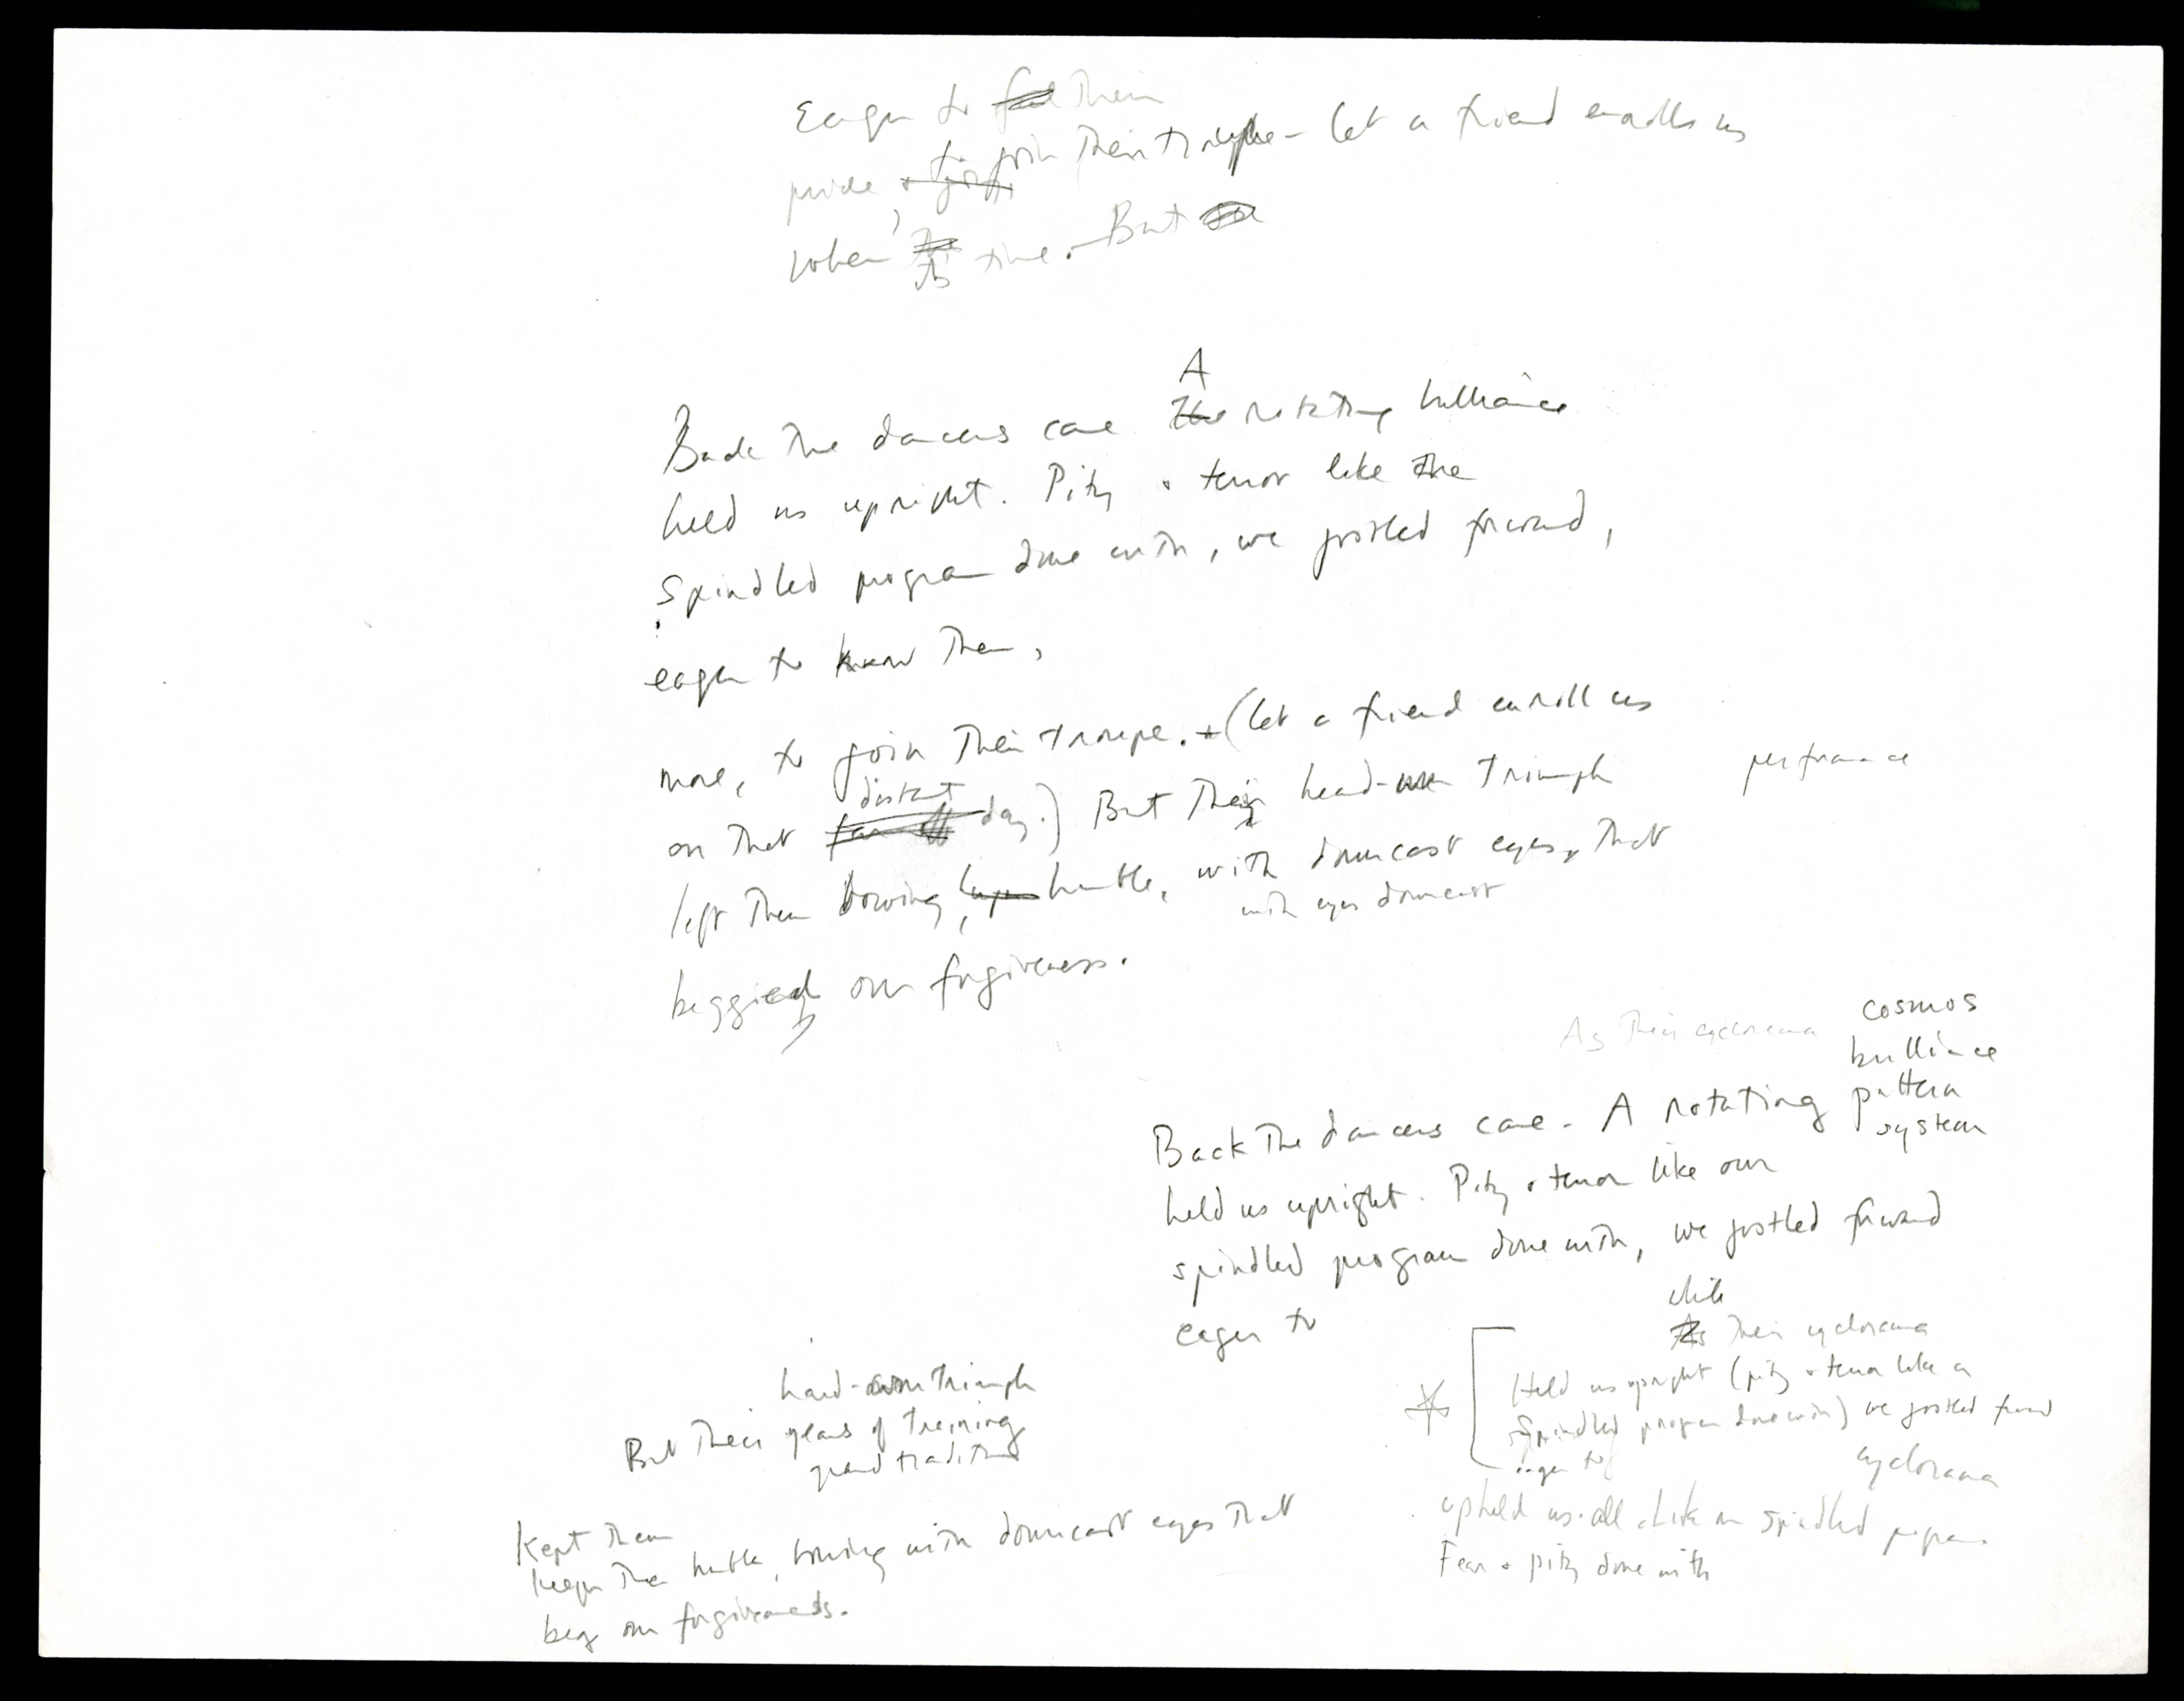 Eager to feel their
pride, to join their troupe - let a friend enrolls us
when its time. - But
A
Back the dancers came The rotating brilliance
held us upright. Pity & terror like the
spindled program done with, we jostled forward,
eager to know them,
more, to join their troupe. + (let a friend enroll us
distant
on that far off day.) But their head-on triumph
performance
left them bowing, humble, with downcast eyes, that
with eyes downcast
begged our forgiveness.
As their cyclorama
cosmos
brilliance
Back the dancers came - A rotating pattern
system
held us upright. Pity & terror like our
spindled program done with, we jostled forward
eager to
while
As their cyclorama
Held us upright (pity & terror like a
spindled program done with) we jostled forward
eager to
cyclorama
upheld us all. Like a spindled program
Fear & pity done with
hard-won triumph
But their years of training
grand tradition
Kept them
keep them humble, bowing with downcast eyes that
beg our forgiveness.